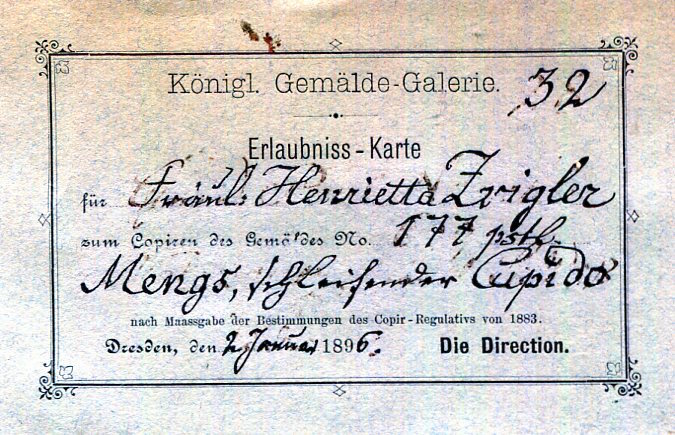 Königl. Gemälde-Galerie. 32
Erlaubniss-Karte
für Fräul. Henrietta Zeigler
zum Copiren des Gemäldes No. 177 pstk.
Mengs, schleifender Cupido
nach Maassgabe der Bestimmungen des Copir-Regulativs von 1883.
Dresden, den 2 Januar 1896. Die Direction.